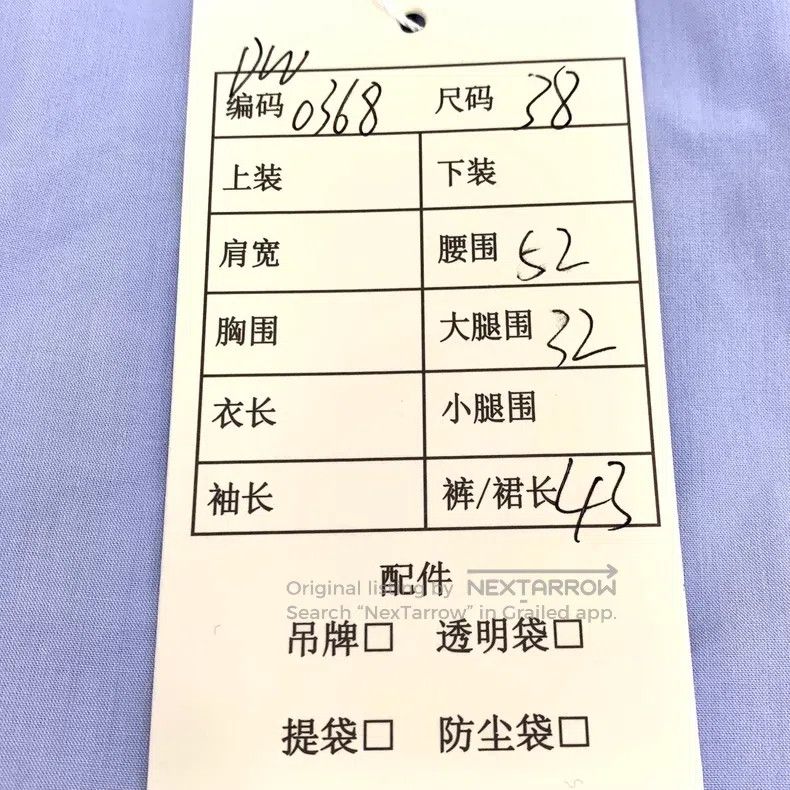 DW
编码 0368 尺码 38
上装 下装
肩宽 腰围 52
胸围 大腿围 32
衣长 小腿围
袖长 裤/裙长 43
配件
Original listing by NEXTARROW
Search “NexTarrow” in Grailed app.
吊牌□ 透明袋□
提袋□ 防尘袋□